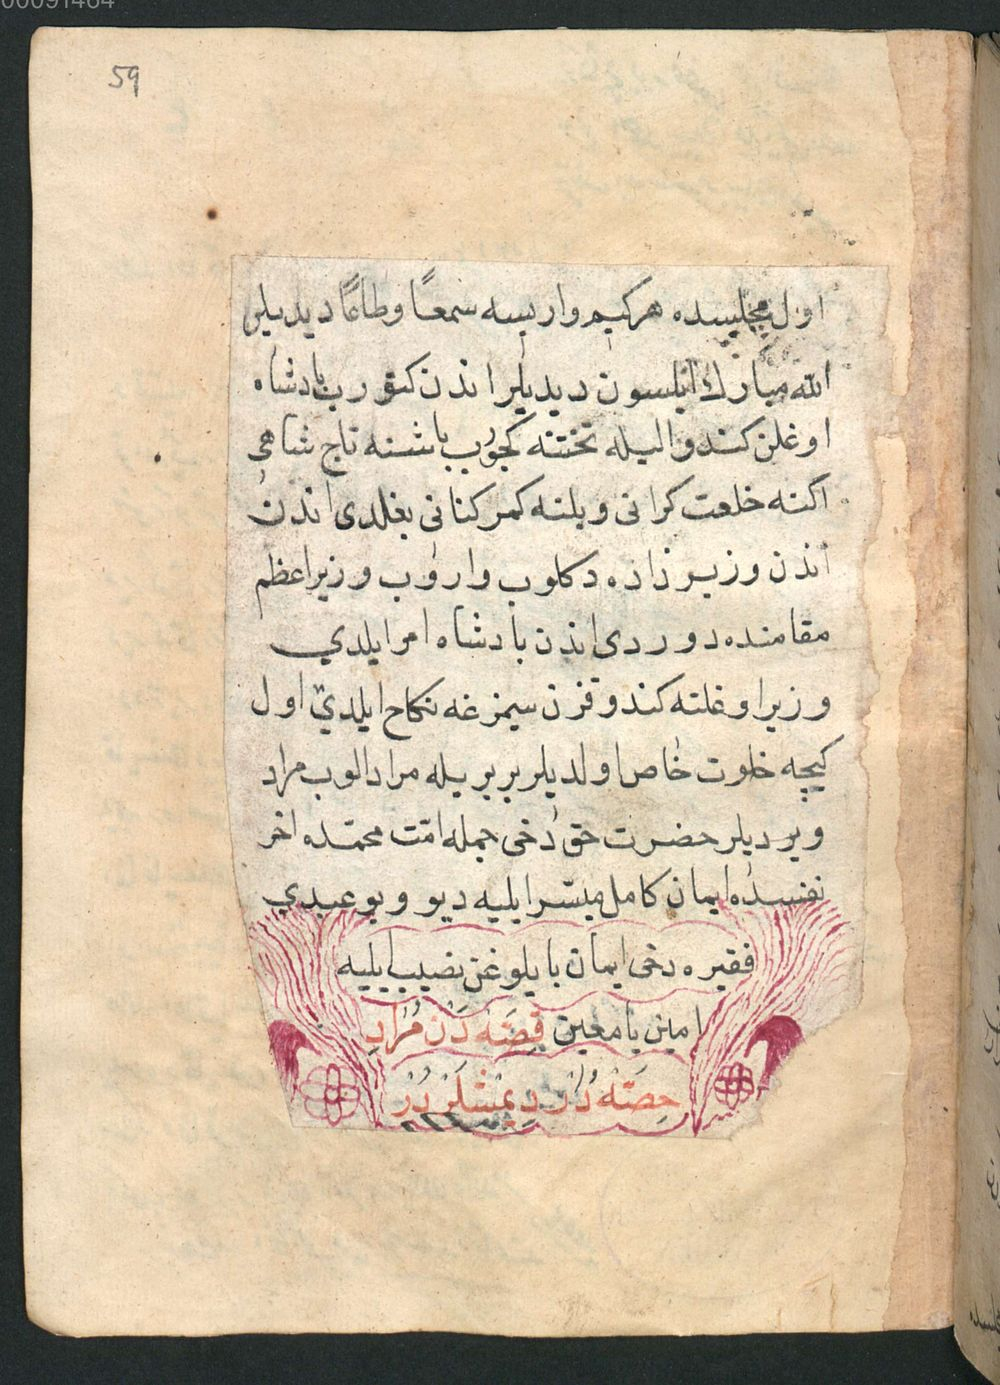 00091464
59
اول مجلسده هر كيم واريسه سمعًا وطاعًا ديديلر
الله مبارك ايلسون ديديلر اندن كتورب پادشاه
اوغلن كندو اليله تختنه كچورب باشنه تاج شاهى
اكنه خلعت كرانى و بلنه كمر كنانى بغلدى اندن
اندن وزير زاده دكلوب واروب وزير اعظم
مقامنده دوردى اندن پادشاه امر ايلدي
وزير اوغلنه كندو قزن سيمرغه نكاح ايلدي اول
كيچه خلوت خاص اولديلر بربريله مراد الوب مراد
ويرديلر حضرت حق دخى جمله امّت محمّده اخر
نفسده ايمان كامل ميسّر ايليه ديو و بو عبدي
فقيره دخى ايمان بايلوغن نصيب ايليه
امين يا معين قِصَّه دَنْ مُرَادِ
حِصَّه دُرْ دِيمِشْلَرْ دُرْ